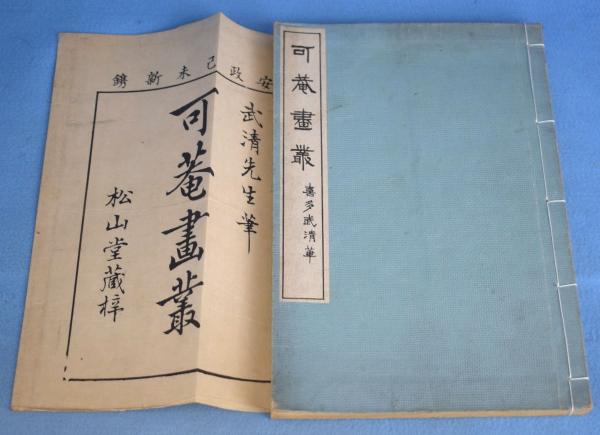 可菴畫叢
喜多武清筆
安政己未新鐫
武清先生筆
可菴畫叢
松山堂藏梓